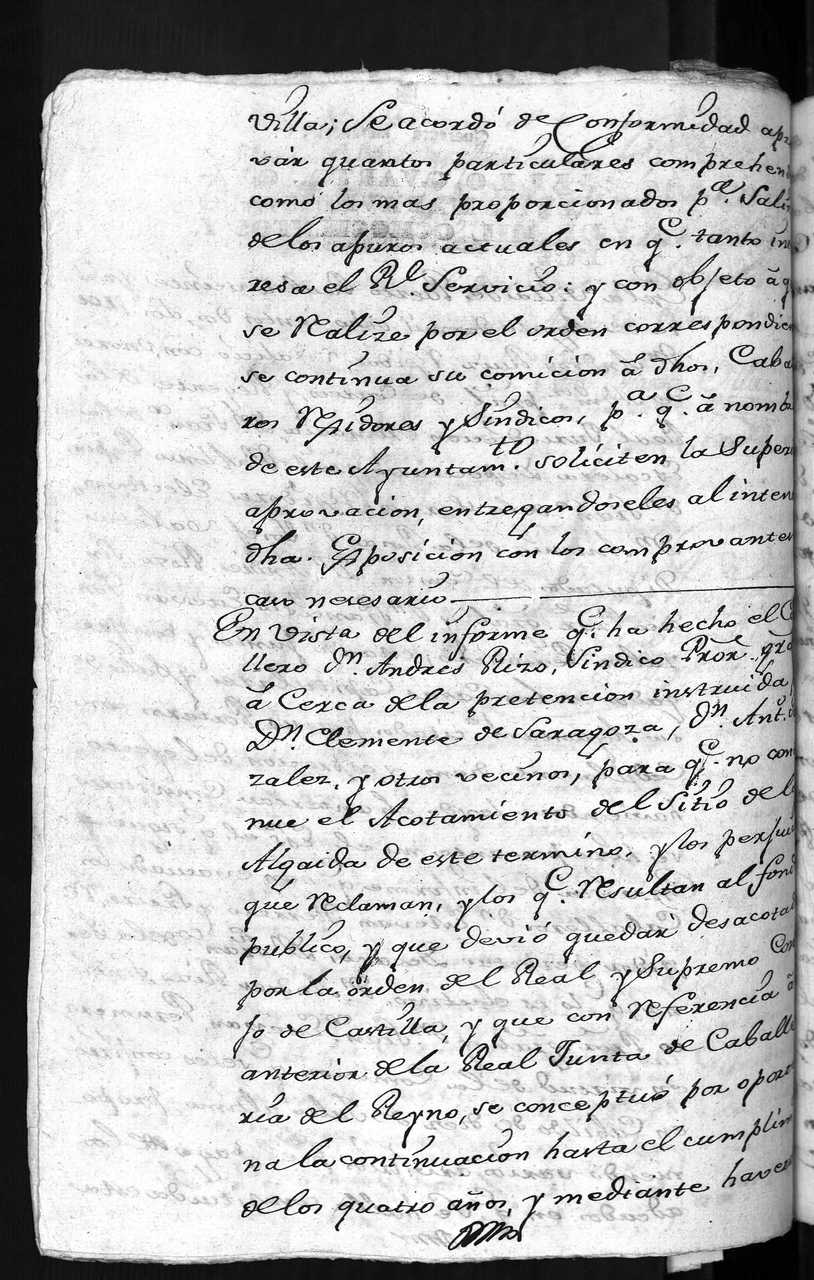 villa; Se acordó de Conformidad apr
vár quantos particulares comprehend
como los mas proporcionados pª. Salir
de los apuros actuales en q.e tanto int
resa el Rl. Servicio: y con objeto á q
se Realize por el orden correspondien
se continua su comicion á dhos, Caba
ros Rexidores y Síndicos, pª. q.e á nomb
de este Ayuntam.to soliciten la Super
aprovacion, entregandoseles al inten
dha. Exposicion con los comprovantes
caso nesesario
En vista del informe q.e ha hecho el C
llero dn. Andres Rizo, Sindico Pror. gra
á Cerca de la pretencion instruida
Dn. Clemente de Saragoza, dn. Ant.
zalez, y otros vecinos, para q.e no con
nue el Acotamiento del Sitio de la
Algaida de este termino, y los perjui
que Reclaman, y los q.e Resultan al fond
publico, y que devió quedar desacota
por la orden del Real y Supremo Con
jo de Castilla, y que con Referencia á
anterior de la Real Junta de Caballe
ria del Reyno, se conceptuó por oport
na la continuacion hasta el cumplim
de los quatro años, y mediante haver